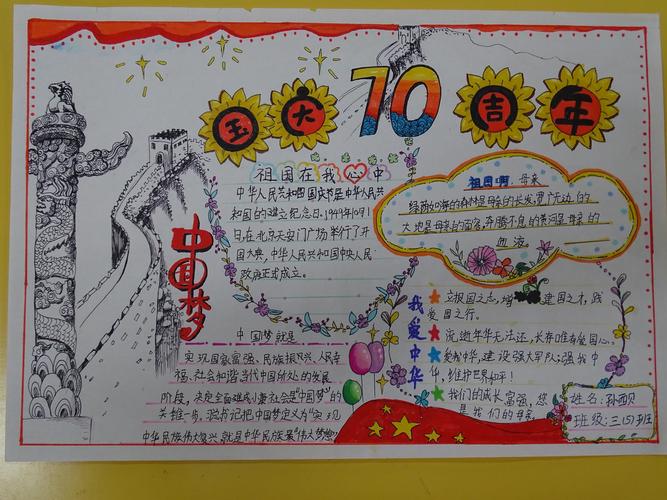 玉大70吉年
祖国在我心中
中华人民共和国国庆节是中华人民共
和国的建立纪念日.1949年10月1
日,在北京天安门广场举行了开
国大典,中华人民共和国中央人民
政府正式成立。
祖国啊,母亲
绿茵如海的森林是母亲的长发,宽广无边的
大地是母亲的面容,奔腾不息的黄河是母亲的
血液
中国梦
中国梦就是
实现国家富强、民族振兴、人民幸
福、社会和谐当代中国所处的发展
阶段,决定全面小康社会是"中国梦"的
关键一步,
记把中国梦定义为"实现
中华民族伟大复兴,就是中华民族最"伟大梦想
我爱中华
立报国之志,增
建国之才,践
爱国之行。
沉逝年华无法还,长存唯有爱国心。
爱我中华,建设强大军队;强我中
华,维护世界和平!
我们的成长
富强,您
是我们的母亲
姓名:孙
班级:三(5)班